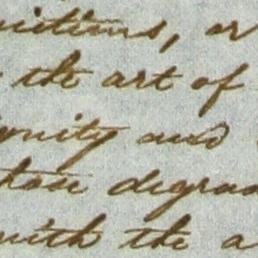 victims, or
the art of
gnity and
hose degrad
with the a